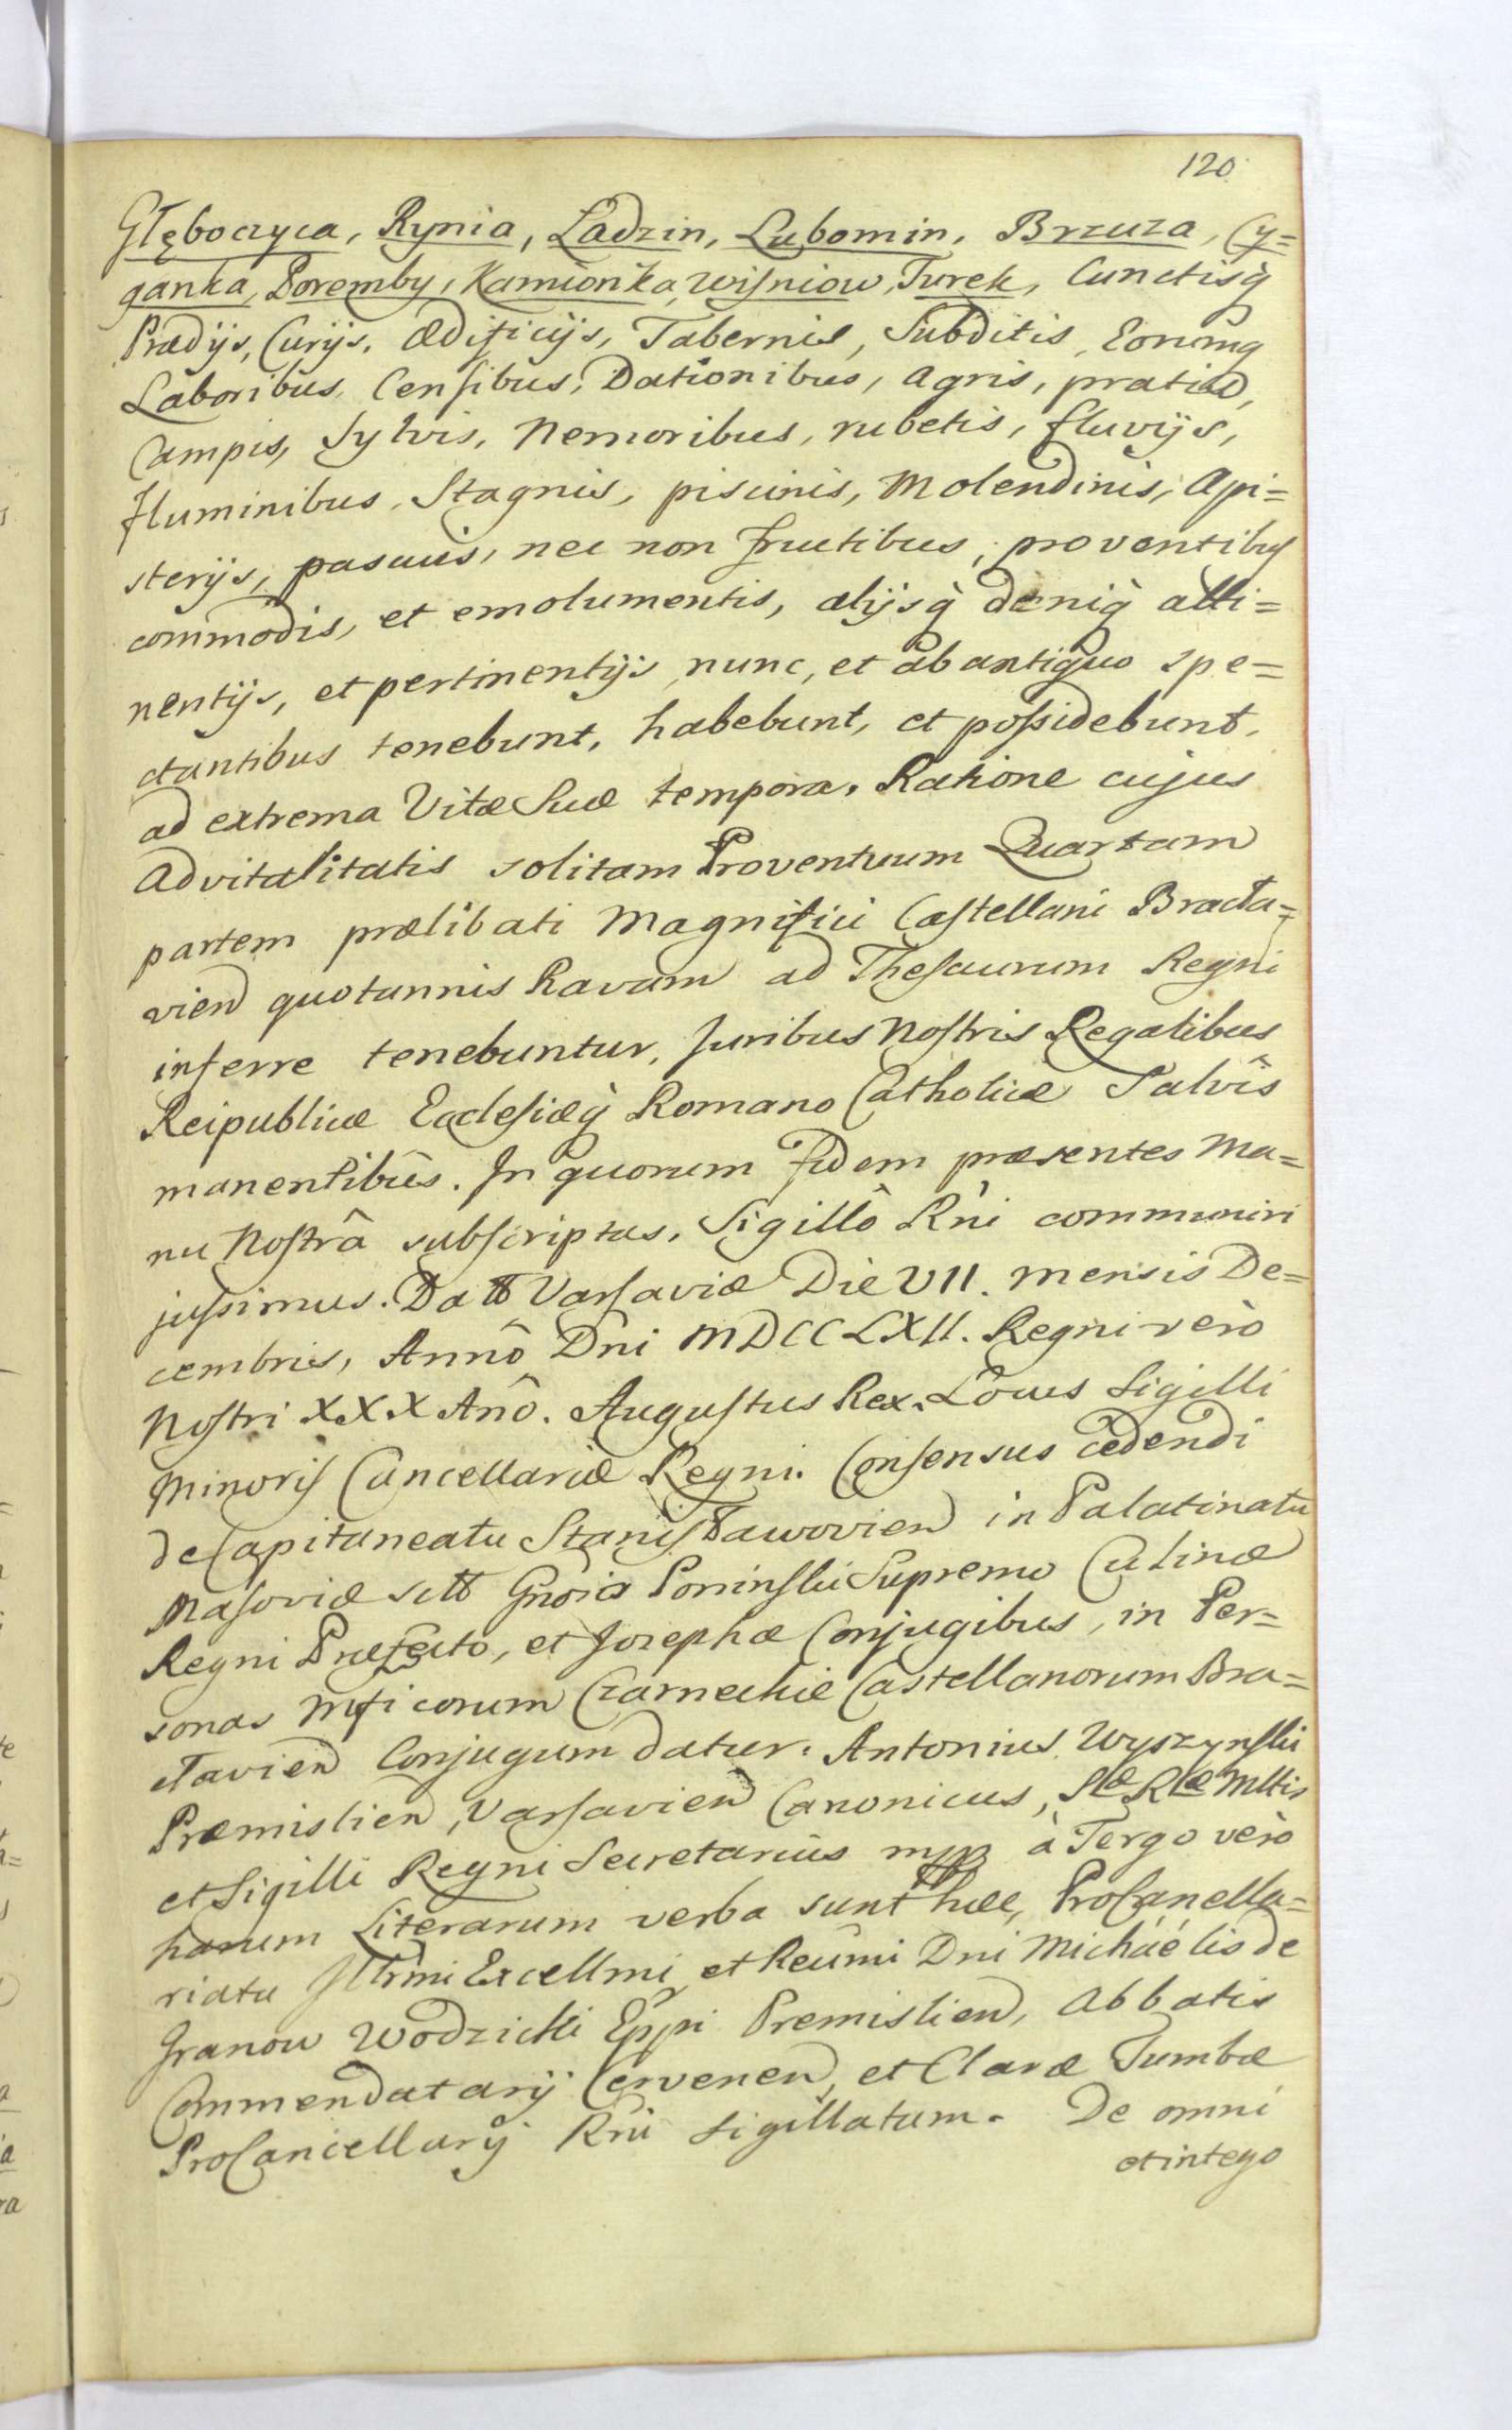 120
Głęboczyca, Rynia, Ladzin, Lubomin, Brzuza, Cy=
ganka, Poremby, Kamionka, Wiſniow, Turek, Cunctisq̀
Prædijs, Curijs, Ædificijs, Tabernis, Subditis, Eorumq
Laboribus, Cenſibus, Dationibus, Agris, pratis,
Campis, Sylvis, Nemoribus, rubetis, fluvijs,
fluminibus, Stagnis, piscinis, Molendinis, Api=
sterijs, pascuis, nec non fructibus, proventibus
commodis, et emolumentis, alijsq̀ deniq̀ atti=
nentijs, et pertinentijs nunc, et ab antiquo spe=
ctantibus tenebunt, habebunt, et poſsidebunt,
ad extrema Vitæ Suæ tempora. Ratione cujus
Advitalitatis solitam Proventuum Quartam
partem prælibati Magnifici Caſtellani Bracła=
vien quotannis Ravam ad Theſaurum Regni
inferre tenebuntur, Juribus Noſtris Regalibus
Reipublicæ Eccleſiæq̀ Romano Catholicæ Salvîs
manentibûs. In quorum fidem præsentes Ma=
nu Noſtrâ subſcriptas, Sigillô Rńi communiri
juſsimus. Datt Varſaviæ Die VII. mensis De=
cembris, Annô Dni MDCCLXII. Regni verò
Noſtri XXX Anô. Auguſtus Rex. Locus Sigilli
Minoriſ Cancellariæ Regni. Conſensus cedendi
de Capitaneatu Staniſławovien in Palatinatu
Maſoviæ sitt Gnôis Poninſkii Supremo Culinæ
Regni Præfecto, et Josephæ Conjugibus, in Per=
sonas Mficorum Czarneckie Castellanorum Bra=
cłavien Conjugum datur. Antonius Wyszynſki
Præmislien, Varſavien Canonicus, Sæ Ræ Mttis
et Sigilli Regni Secretarius mpp à Tergo verò
harum Literarum verba sunt hæc, ProCancella=
riatu Illrmi Excellmi et Reûmi Dni Michaélis de
Granow Wodzicki Eppi Premislien, Abbatis
Commendatarij Cervenen, et Claræ Tumbæ
ProCancellarij Rni Sigillatum. De omni
et intego